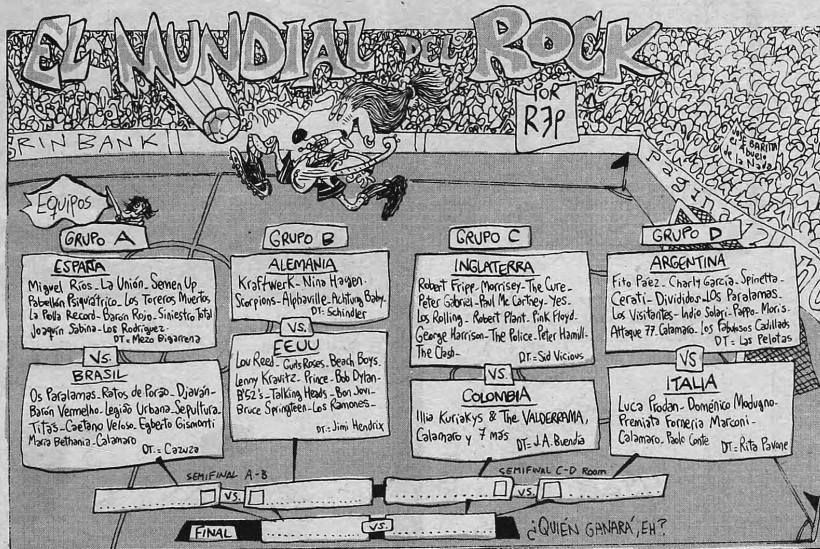 EL MUNDIAL DEL ROCK
POR
R3P
RIN BANK
VOY
BARITA
el Abuelo
de la Nada!
Página
Equipos
GRUPO A
ESPAÑA
Miguel Rios - La Unión - Semen Up
Pabellón Psiquiátrico - Los Toreros Muertos
La Polla Record - Barón Rojo - Siniestro Total
Joaquín Sabina - Los Rodríguez -
DT = Mezo Bigarrena
VS.
BRASIL
Os Paralamas - Ratos de Porão - Djaván -
Barón Vermelho - Legião Urbana - Sepultura -
Titãs - Caetano Veloso - Egberto Gismonti
Maria Bethania - Calamaro
DT. = Cazuza
GRUPO B
ALEMANIA
Kraftwerk - Nina Haygen -
Scorpions - Alphaville - Achtung Baby -
DT: Schindler
VS.
EEUU
Lou Reed - Guns Roses - Beach Boys -
Lenny Kravitz - Prince - Bob Dylan -
B'52's - Talking Heads - Bon Jovi -
Bruce Springteen - Los Ramones -
DT. = Jimi Hendrix
GRUPO C
INGLATERRA
Robert Fripp - Morrisey - The Cure -
Peter Gabriel - Paul Mc Cartney - Yes -
Los Rolling - Robert Plant - Pink Floyd -
George Harrison - The Police - Peter Hamill -
The Clash -
DT. = Sid Vicious
VS.
COLOMBIA
Illia Kuriakys & The VALDERRAMA,
Calamaro y 7 más
DT. = J.A. Buendía
GRUPO D
ARGENTINA
Fito Páez - Charly García - Spinetta -
Cerati - Divididos - LOS Paralamas -
Los Visitantes - Indio Solari - Pappo - Moris -
Attaque 77 - Calamaro - Los Fabulosos Cadillacs
DT = Las Pelotas
VS
ITALIA
Luca Prodan - Doménico Modugno -
Premiata Forneria Marconi -
Calamaro - Paolo Conte
DT = Rita Pavone
SEMIFINAL A-B
VS.
SEMIFINAL C-D Room
VS.
FINAL
VS.
¿QUIÉN GANARÁ, EH?